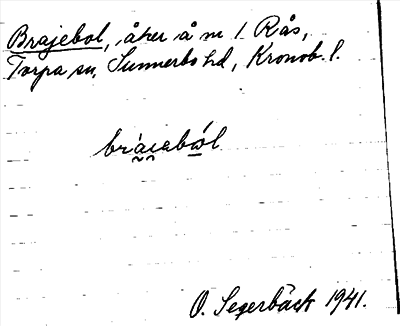 Brajebol, åker å nr 1 Rås,
Torpa sn, Sunnerbo hd, Kronob. l.
bràɪ̯abὼl
O. Segerbäck 1941.